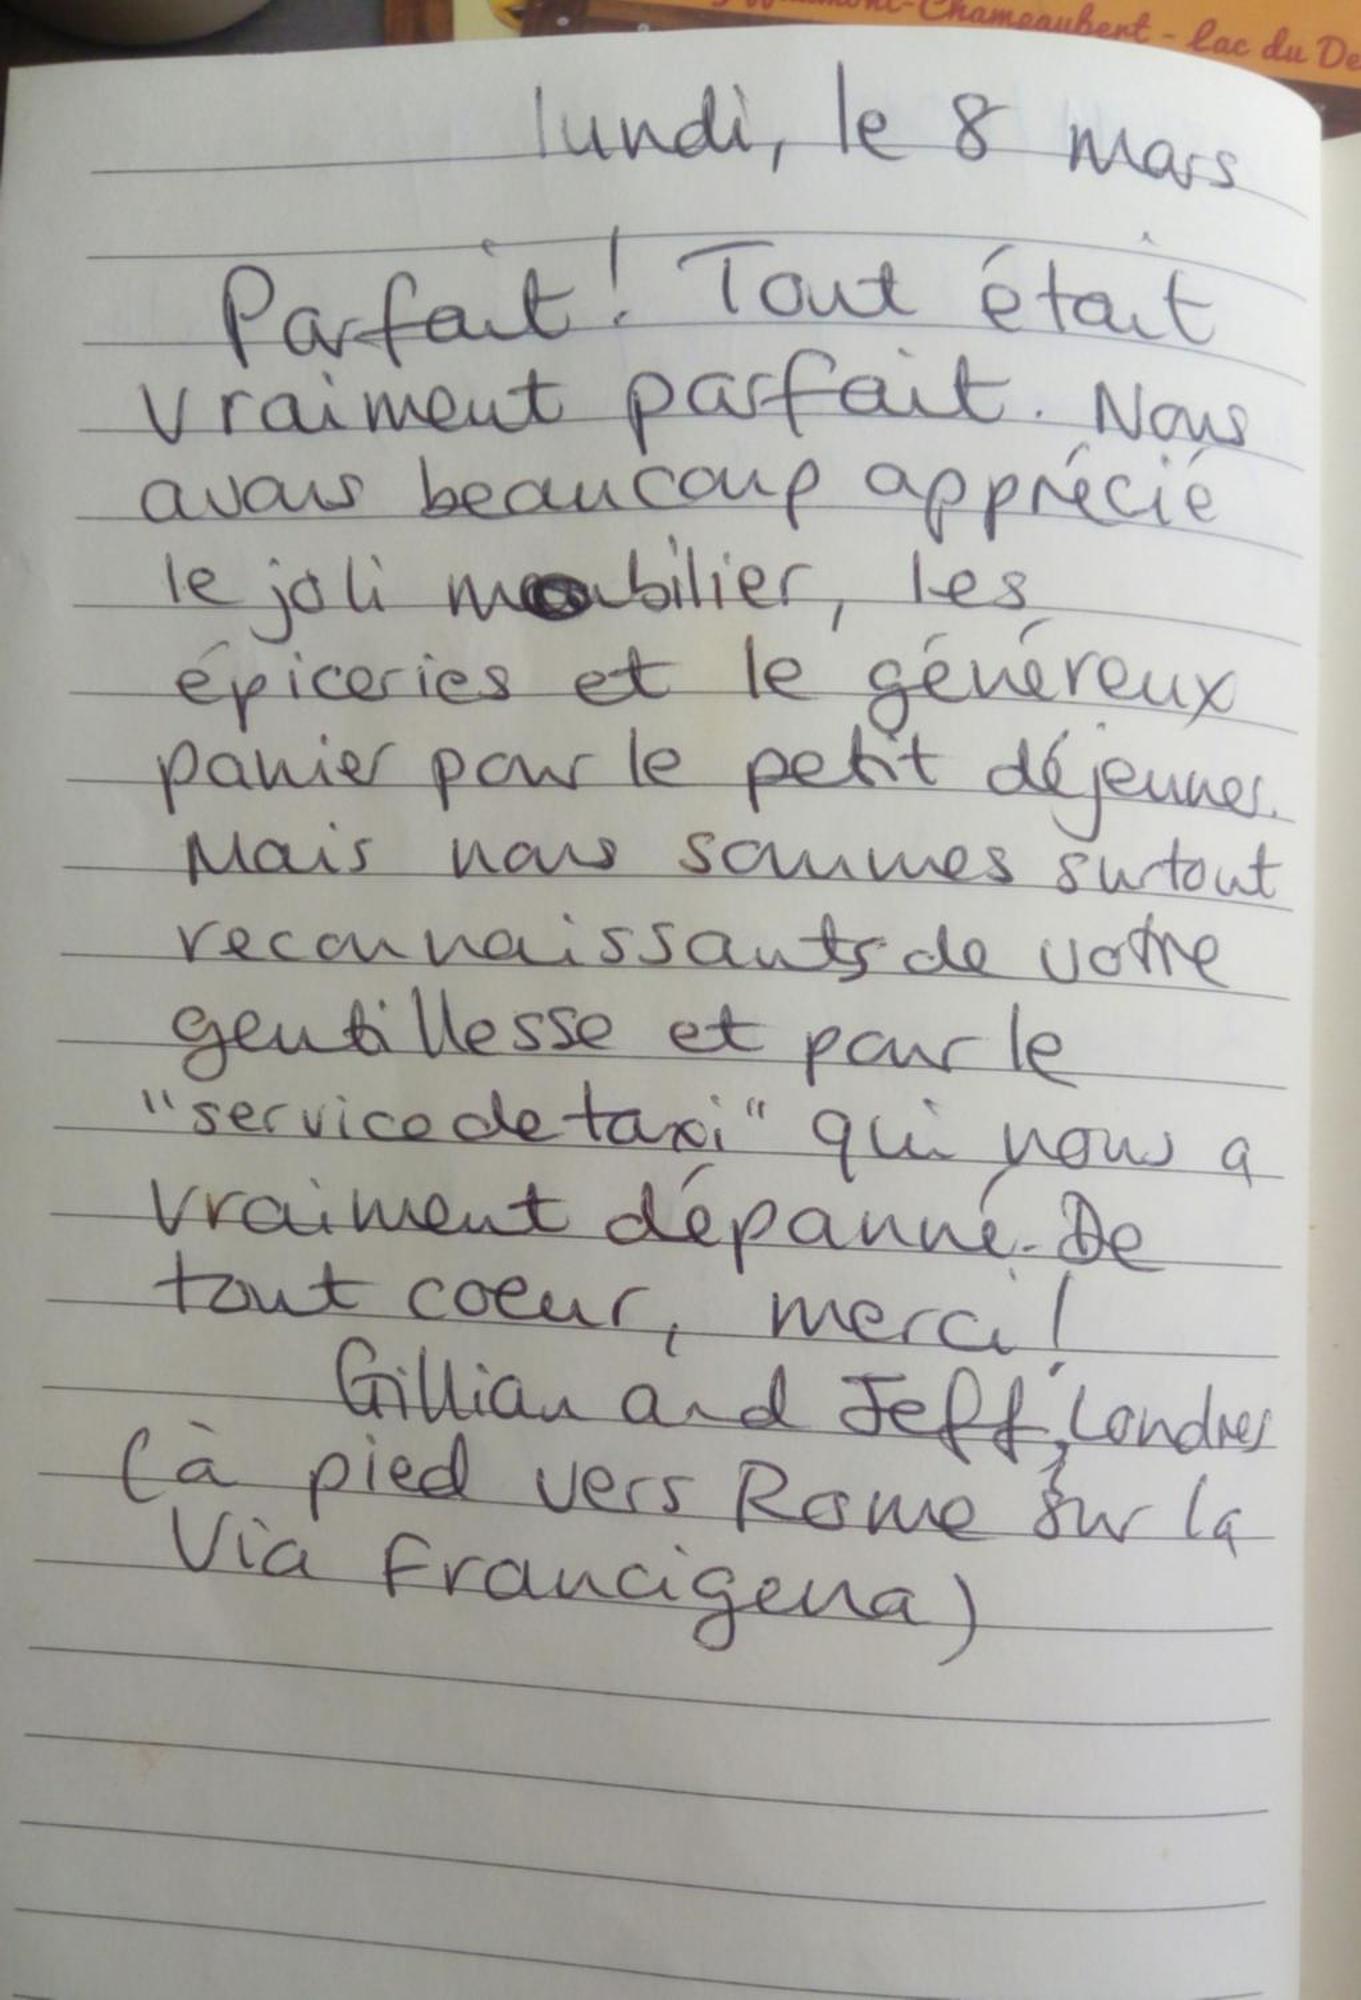 -Chameaubert - Lac du De
lundi, le 8 mars
Parfait! Tout était
vraiment parfait. Nous
avons beaucoup apprécié
le joli mobilier, les
épiceries et le généreux
panier pour le petit déjeuner.
Mais nous sommes surtout
reconnaissants de votre
gentillesse et pour le
"service de taxi" qui nous a
vraiment dépanné. De
tout coeur, merci!
Gillian and Jeff, Londres
(à pied vers Rome sur la
Via Francigena)